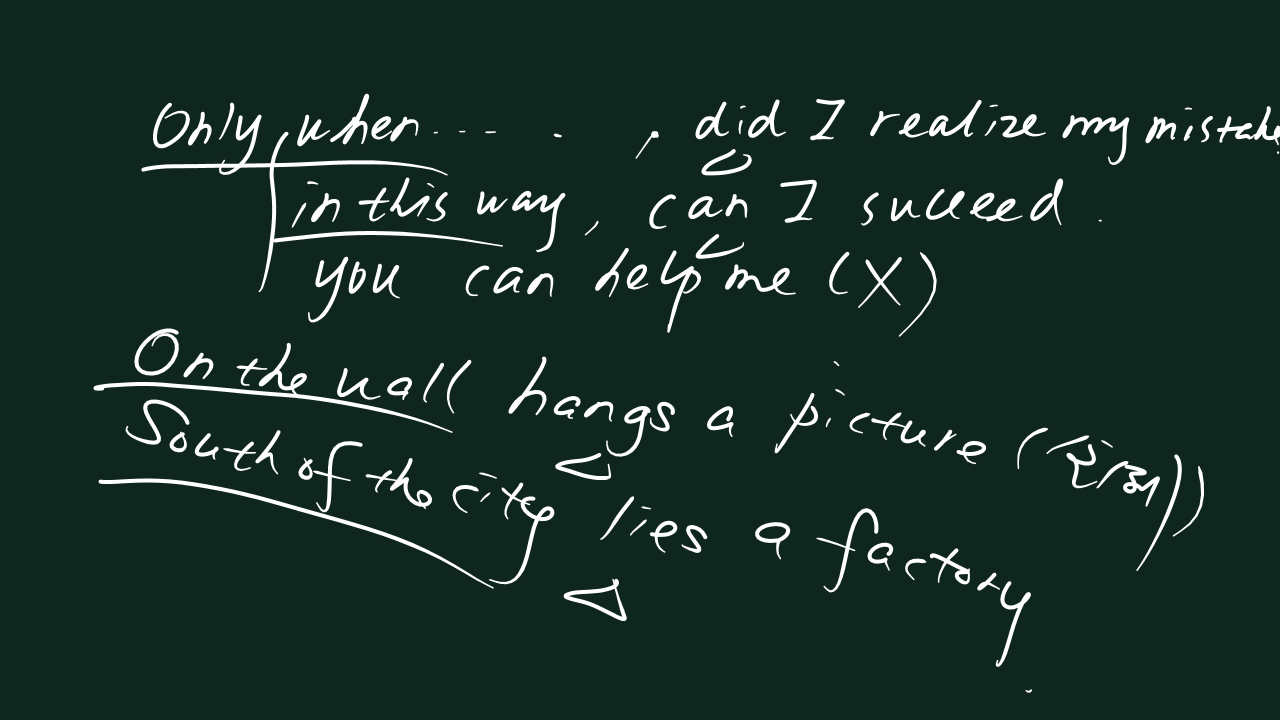 Only when..... , did I realize my mistake
in this way, can I succeed.
you can help me (X)
On the wall hangs a picture (倒)
South of the city lies a factory.